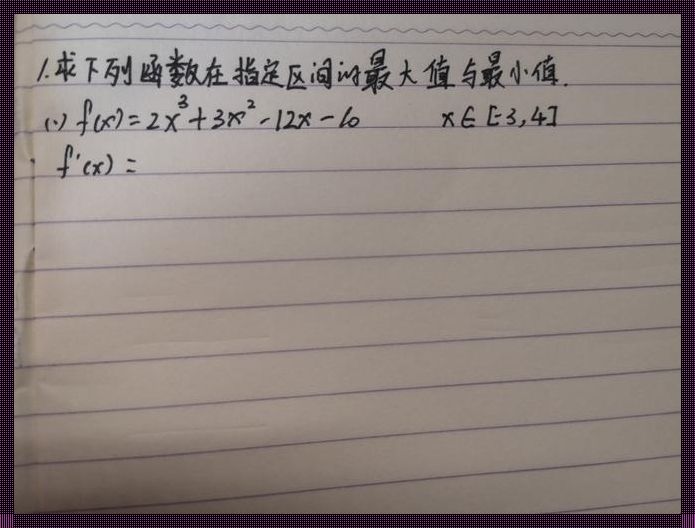 1.求下列函数在指定区间的最大值与最小值.
(1) f(x)=2x³+3x²-12x-10 x∈[-3,4]
f'(x)=